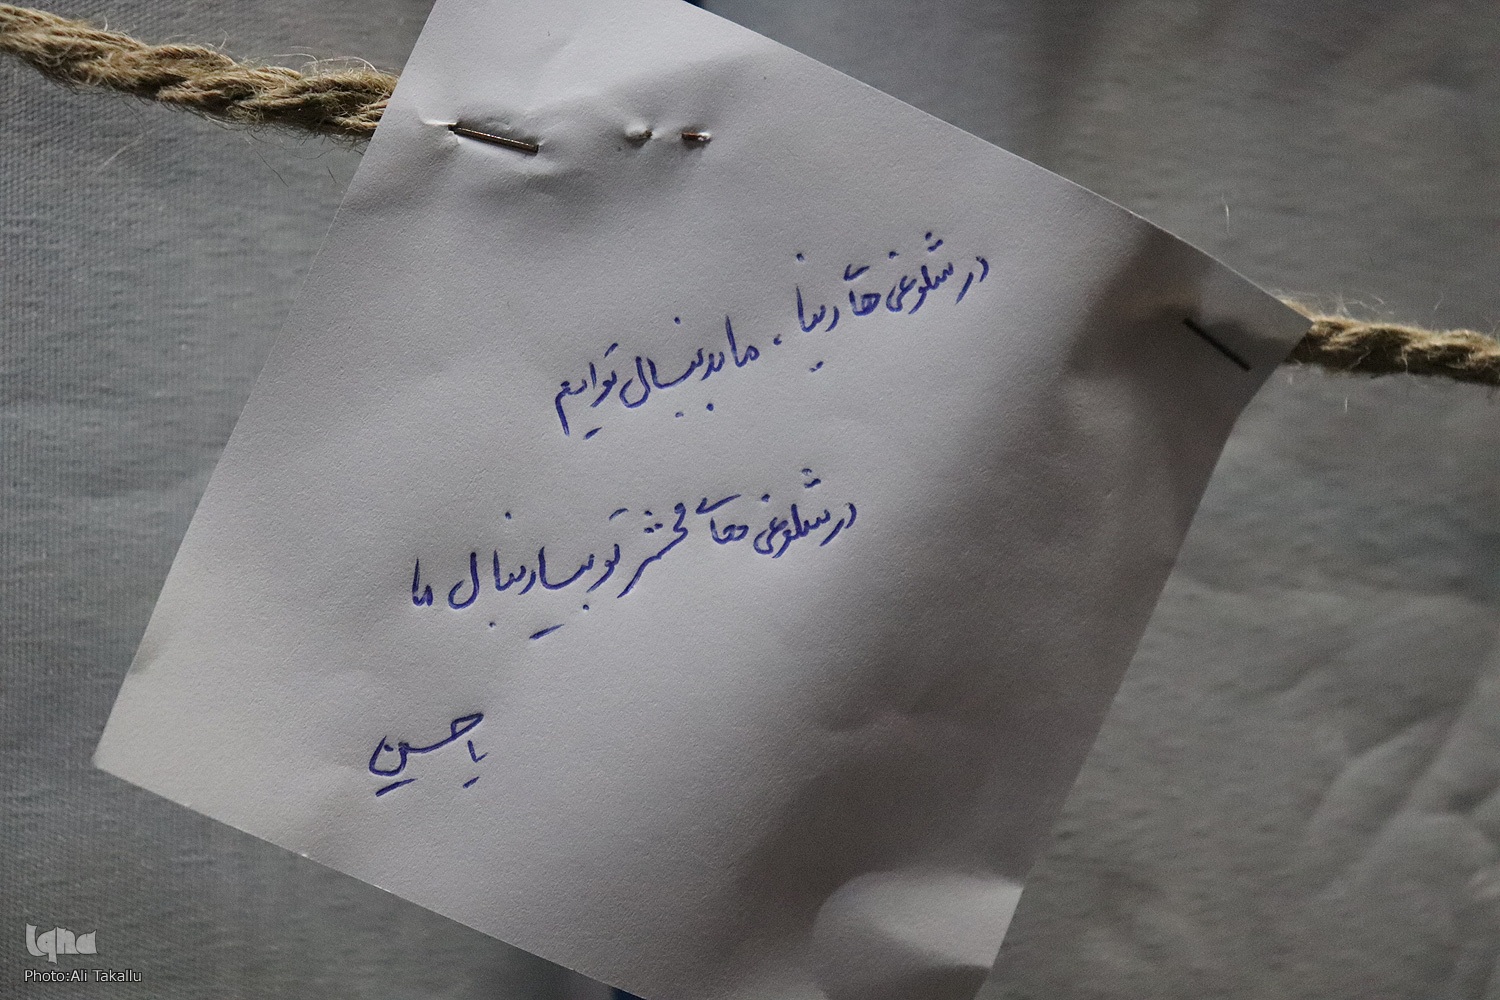 در شلوغی های دنیا، ما به دنبال توایم
در شلوغی های محشر تو بیا دنبال ما
یا حسین
iqna
Photo:Ali Takallu